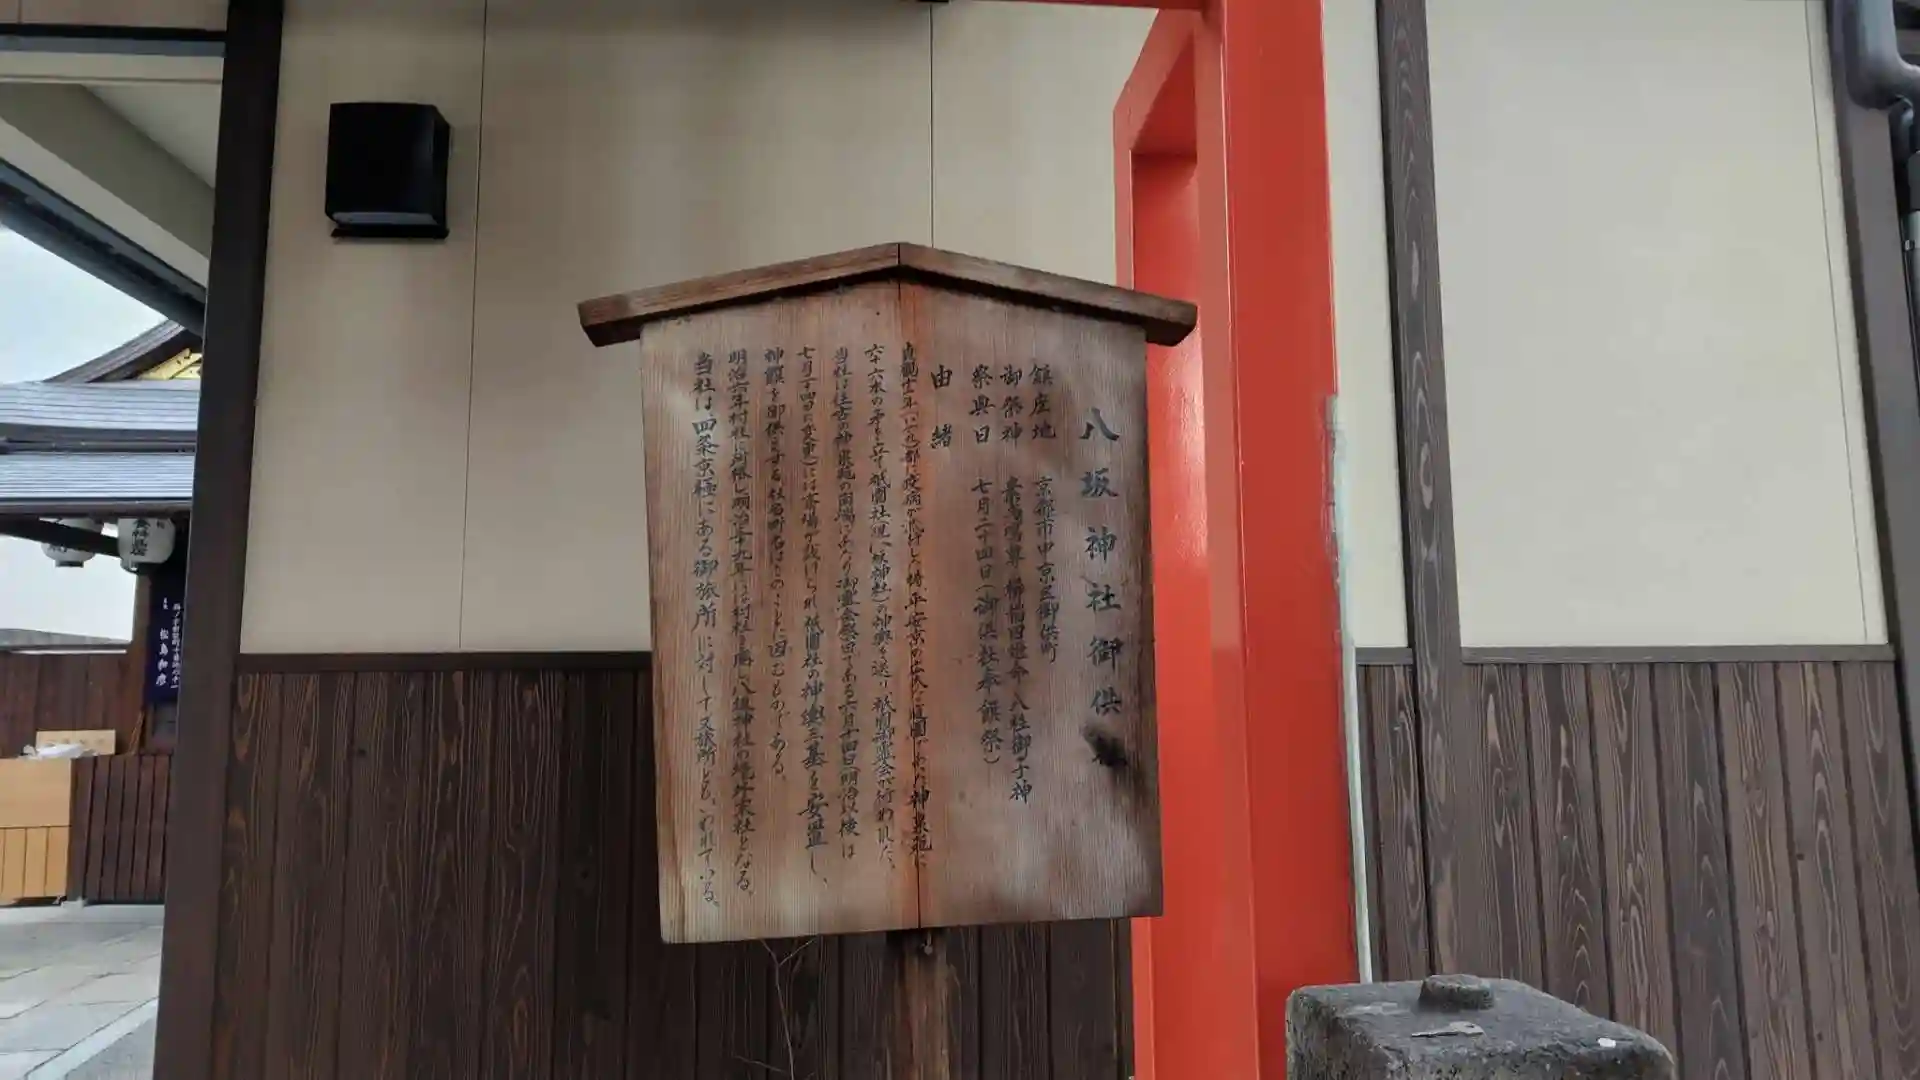 八坂神社御供社
鎮座地 京都市中京区御供町
御祭神 素戔嗚尊 櫛稲田姫命 八柱御子神
祭典日 七月二十四日(御供社奉饌祭)
由緒
貞観十一年(八六九)都に疫病が流行した時、平安京の広大な庭園であった神泉苑に
六十六本の矛を立て祇園社(現八坂神社)の神輿を送り祇園御霊会が行われた。
当社は往古の神泉苑の南端にあたり御霊会祭日である六月十四日(明治以後は
七月二十四日に変更)には斎場が設けられ祇園社の神輿三基を安置し、
神饌を御供えする 社名町名はこのことに因むものである。
明治六年村社に列格し明治三十九年には村社を廃し八坂神社の境外末社となる。
当社は、四条京極にある御旅所に対して又旅所とも、いわれている。